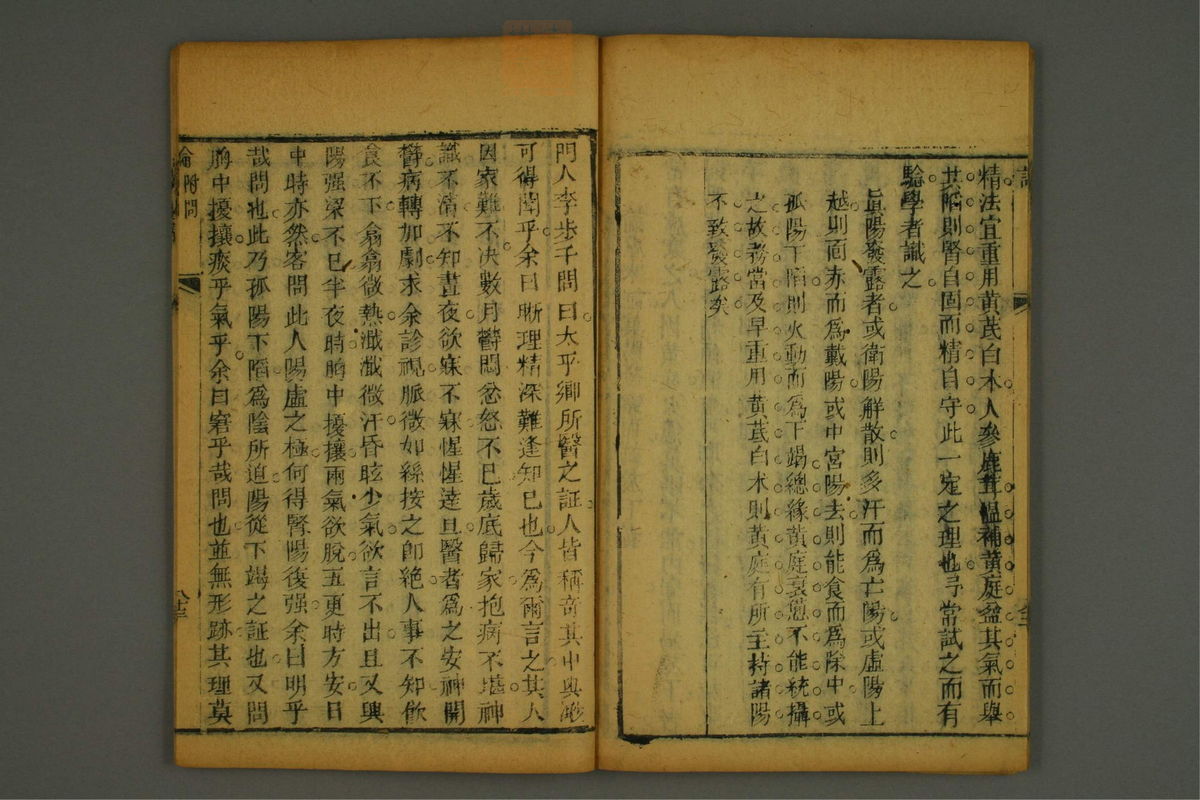 精法宜重用黃芪白术人參鹿茸溫補黃庭盆其氣而舉
其陷則腎自固而精自守此一定之理也予常試之而有
驗學者識之
眞陽發露者或衛陽解散則多汗而為亡陽或虛陽上
越則面赤而為戴陽或中宮陽去則能食而為除中或
孤陽下陷則火動而為下竭總緣黃庭衰憊不能統攝
之故務當及早重用黃芪白术則黃庭有所主持諸陽
不致發露矣
門人李步千問曰太乎鄉所醫之証人皆稱奇其中奧渺
可得聞乎余曰晰理精深難逢知已也今為爾言之其人
因家難不決數月鬱悶忿怒不已歲底歸家抱病不堪神
識不清不知晝夜欲寐不寐惺惺達旦醫者為之安神開
鬱病轉加劇求余診視脈微如絲按之即絕人事不知飲
食不下翕翕微熱濈濈微汗昏眩少氣欲言不出且又興
陽强梁不已半夜時胸中擾攘兩氣欲脫五更時方安日
中時亦然客問此人陽虛之極何得腎陽復强余曰明乎
哉問也此乃孤陽下陷為陰所迫陽從下竭之証也又問
胸中擾攘痰乎氣乎余曰窘乎哉問也並無形跡其理莫
附問